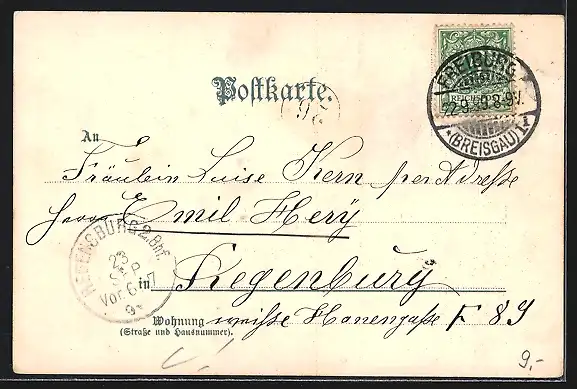 Postkarte.
FREIBURG
22.9.99 8-9V.
*(BREISGAU)1*
An
Fräulein Luise Kern per Adreße
Herrn Emil Hery
REGENSBURG 2.Bhf.
23
SEP
Vor. 6-7
in Regenburg
Wohnung weiße Hanengaße F 89
(Straße und Hausnummer).
9.-